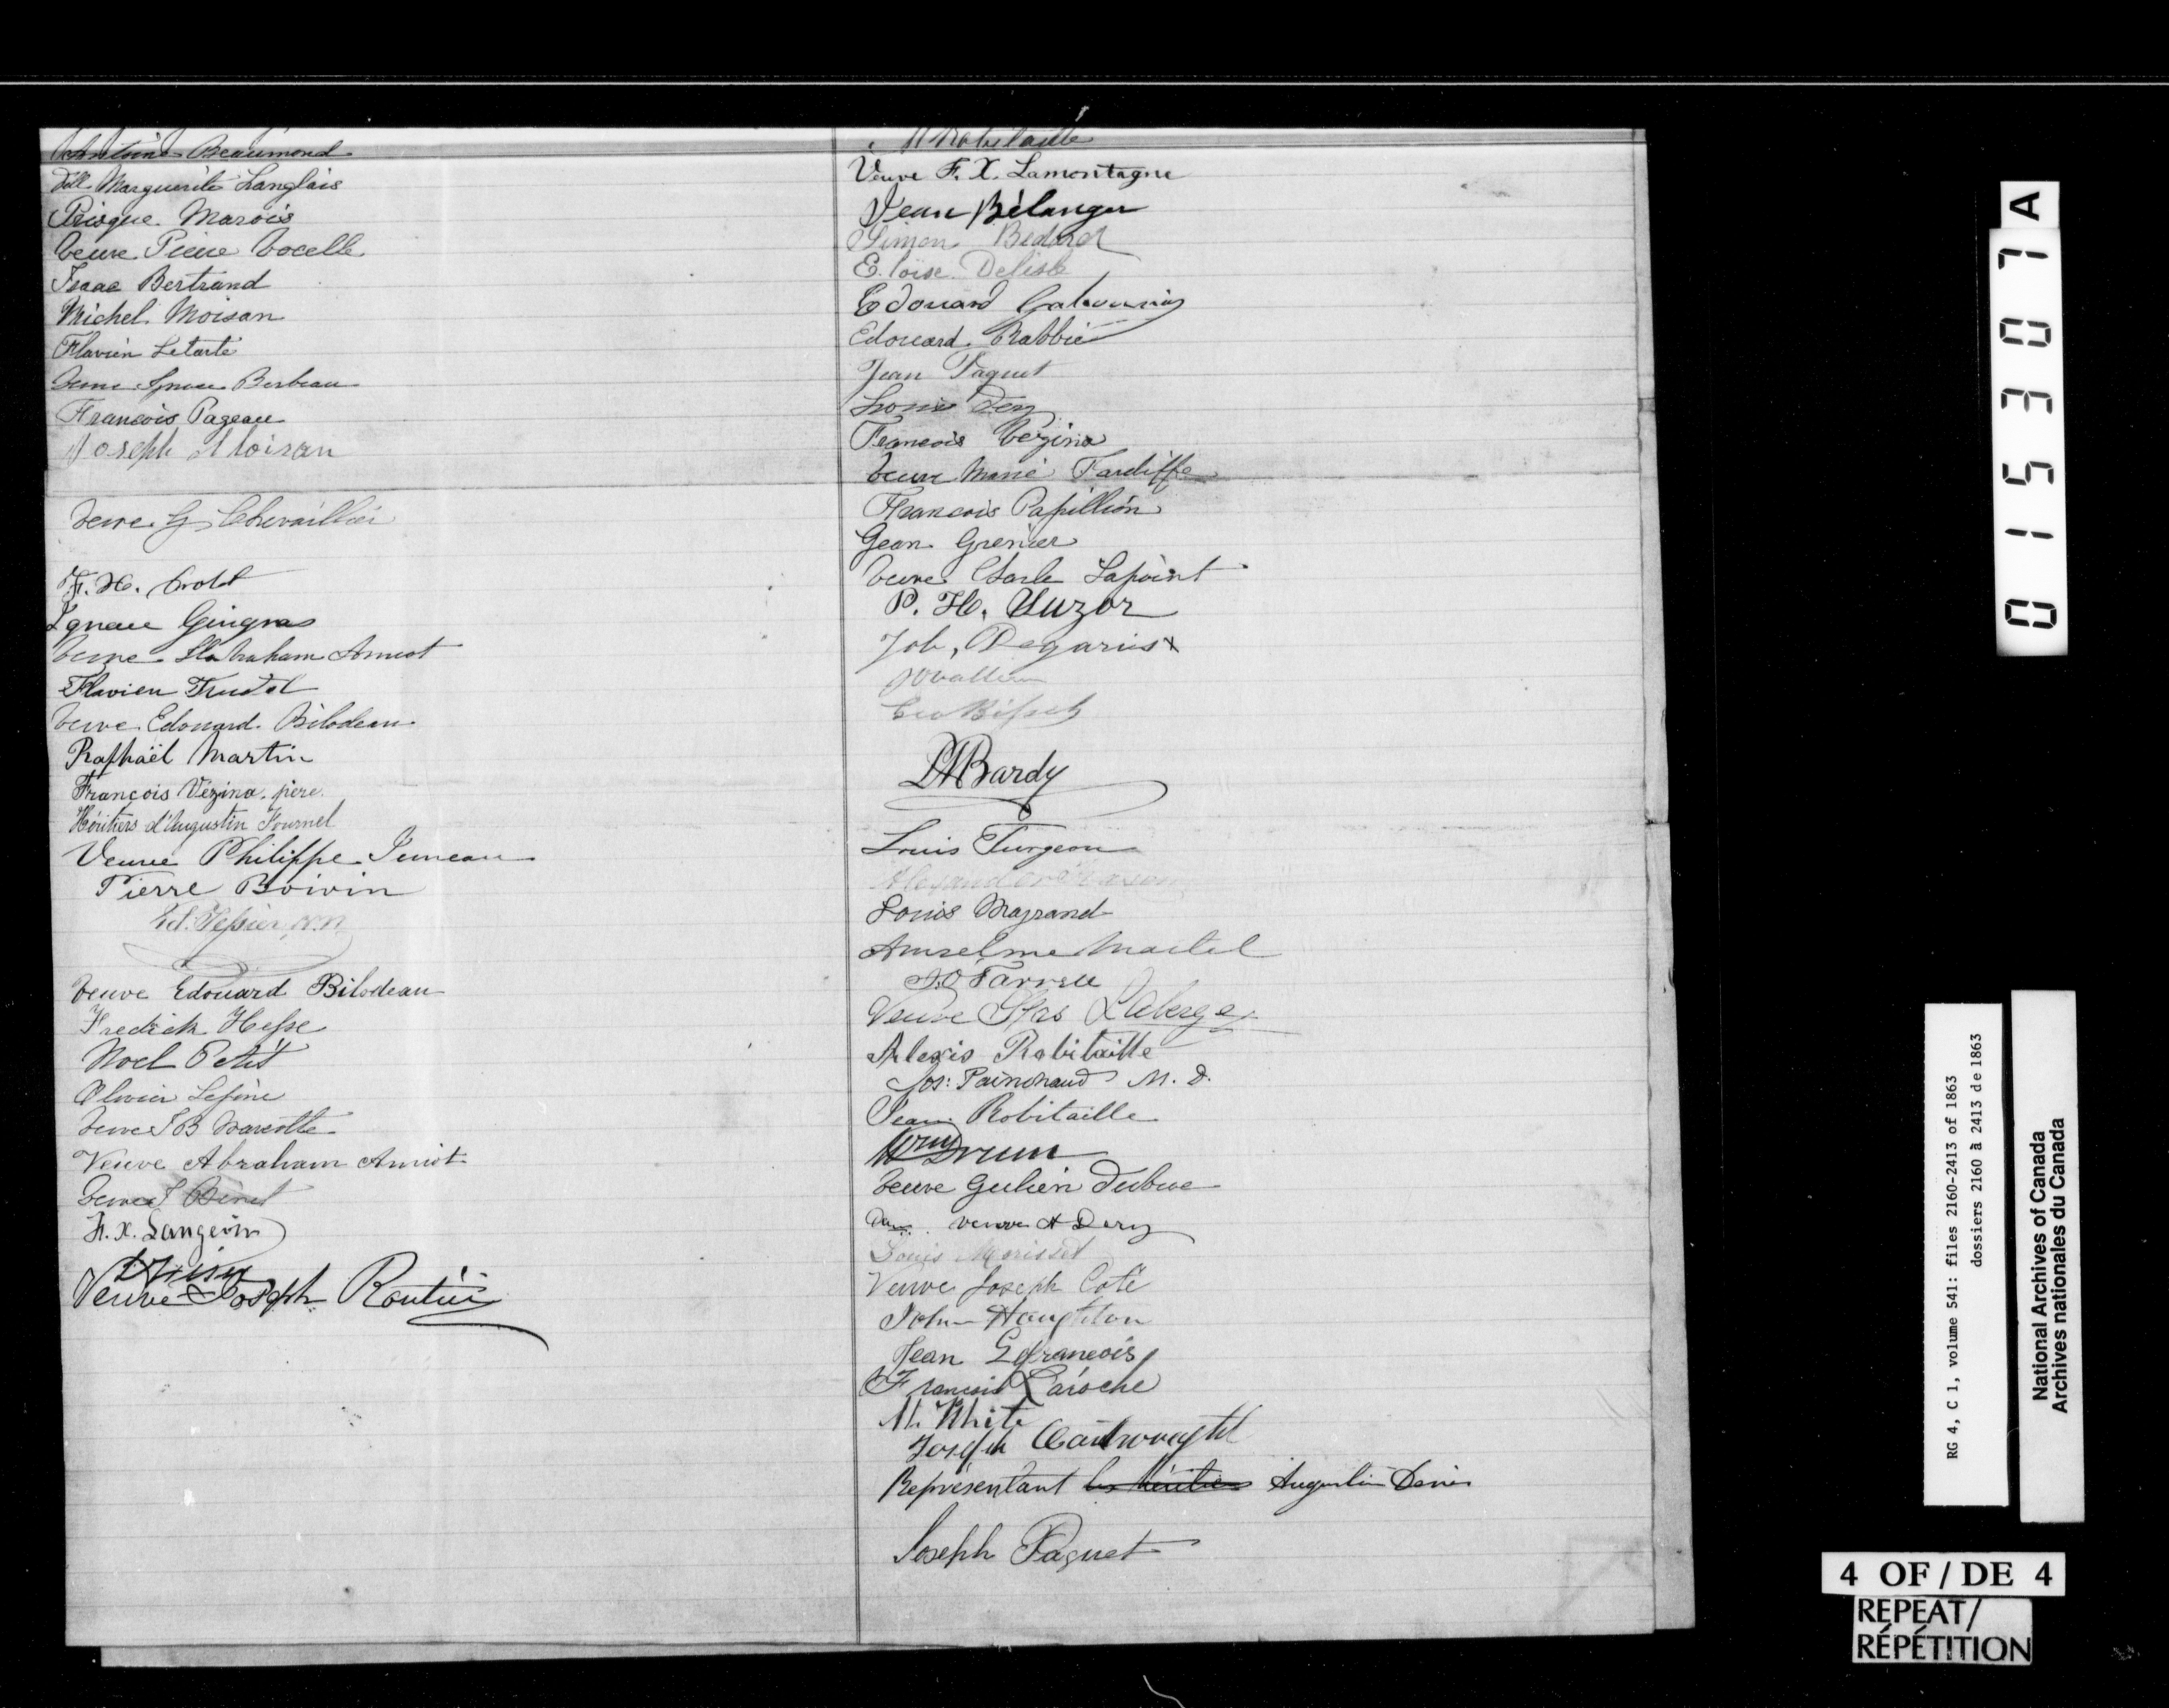 Antoine Beaumond
Dlle Marguerite Langlais
Prisque Marois
Veuve Pierre Vocelle
Isaac Bertrand
Michel Moisan
Flavien Letarte
Veuve Ignace Barbeau
François Pageau
Joseph Moisan
Veuve G Chevaillier
F. X.
Ignace Gingras
Veuve Abraham Amiot
Flavien Trudel
Veuve Edouard Bilodeau
Raphaël Martin
François Vézina, père.
Héritiers d'Augustin Fournel
Veuve Philippe Juneau
Pierre Boivin
Ed. Tessier, N.P.
Veuve Edouard Bilodeau
Fredick Hesse
Noel Petit
Olivier Lepine
Veuve J B Marcotte
Veuve Abraham Amiot
Veuve J Binet
F. X. Langevin
Veuve Joseph Routier
Robitaille
Veuve F. X. Lamontagne
Jean Bélanger
Simon Bedard
Eloise Delisle
Edouard
Edouard
Jean Paquet
Louis Dery
Francois Vezina
Veuve Marie Tardiffe
Francois Papillion
Jean Grenier
Veuve Charle Lapoint
P. H. Suzor
Job, Degaris
PM Bardy
Louis Turgeon
Louis Magrand
Anselme Martel
J. O'Farrell
Veuve Chas Laberge
Alexis Robitaille
Jos: Painchaud M. D.
Jean Robitaille
Wm Drum
Veuve Julien Dubuc
Dame veuve A Dery
Louis Morisset
Veuve Joseph Coté
John Houghton
Jean Lefrancois
Francois Laroche
M. White
Joseph
Représentant les héritiers Augustin Denis
Joseph Paquet
A
015307
RG 4, C 1, volume 541: files 2160-2413 of 1863
dossiers 2160 à 2413 de 1863
National Archives of Canada
Archives nationales du Canada
4 OF / DE 4
REPEAT/
RÉPÉTITION